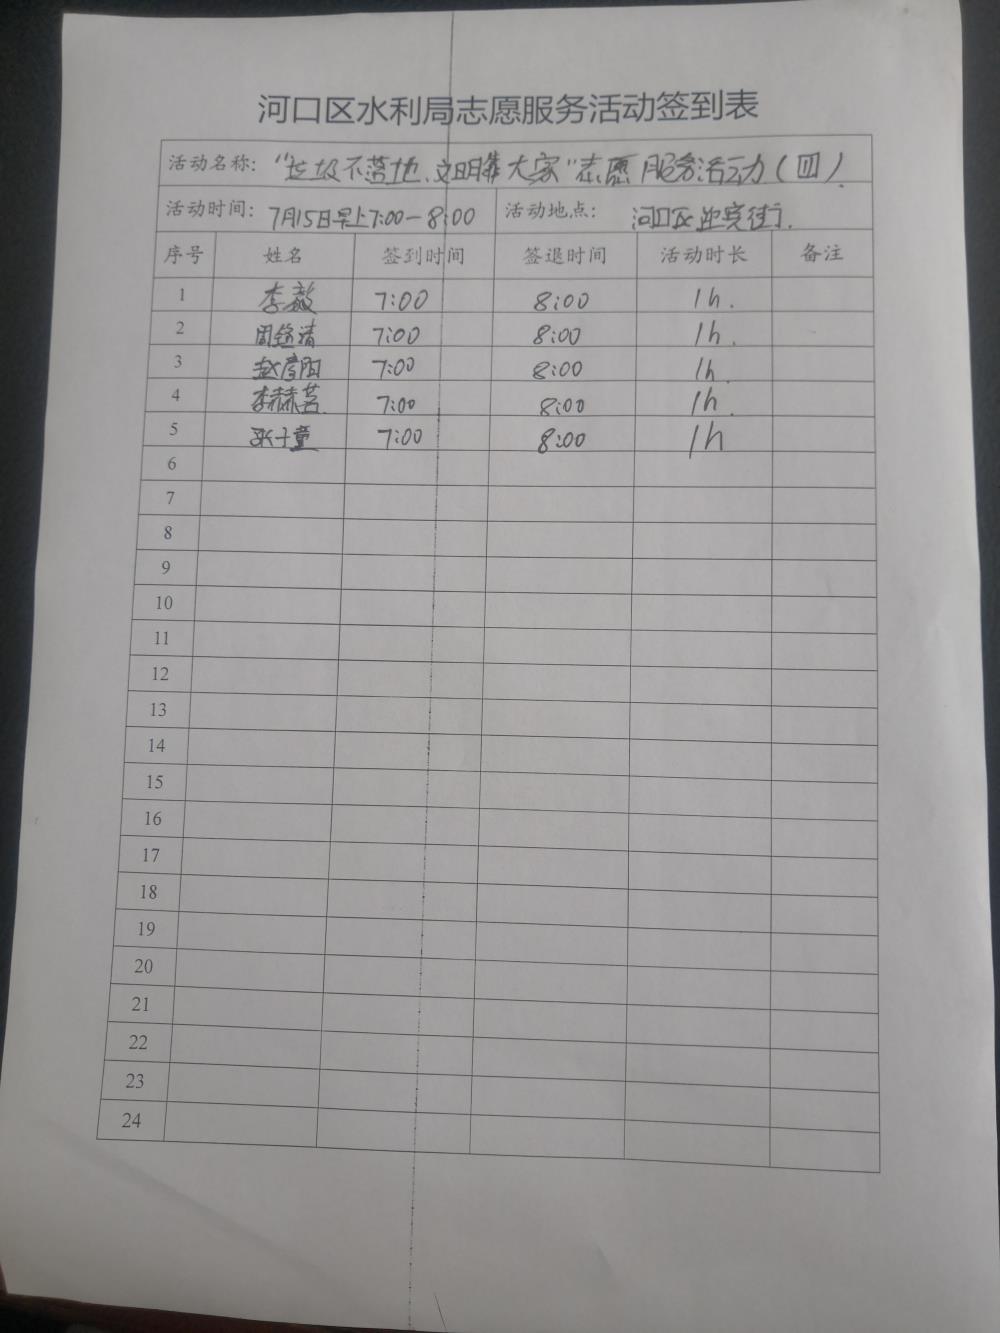 河口区水利局志愿服务活动签到表
活动名称: "垃圾不落地、文明靠大家"志愿服务活动(四).
活动时间: 7月15日早上7:00-8:00 活动地点: 河口区迎宾街.
序号 姓名 签到时间 签退时间 活动时长 备注
1 李毅 7:00 8:00 1h.
2 7:00 8:00 1h.
3 赵彦阳 7:00 8:00 1h.
4 李赫茗 7:00 8:00 1h.
5 张子童 7:00 8:00 1h
6
7
8
9
10
11
12
13
14
15
16
17
18
19
20
21
22
23
24